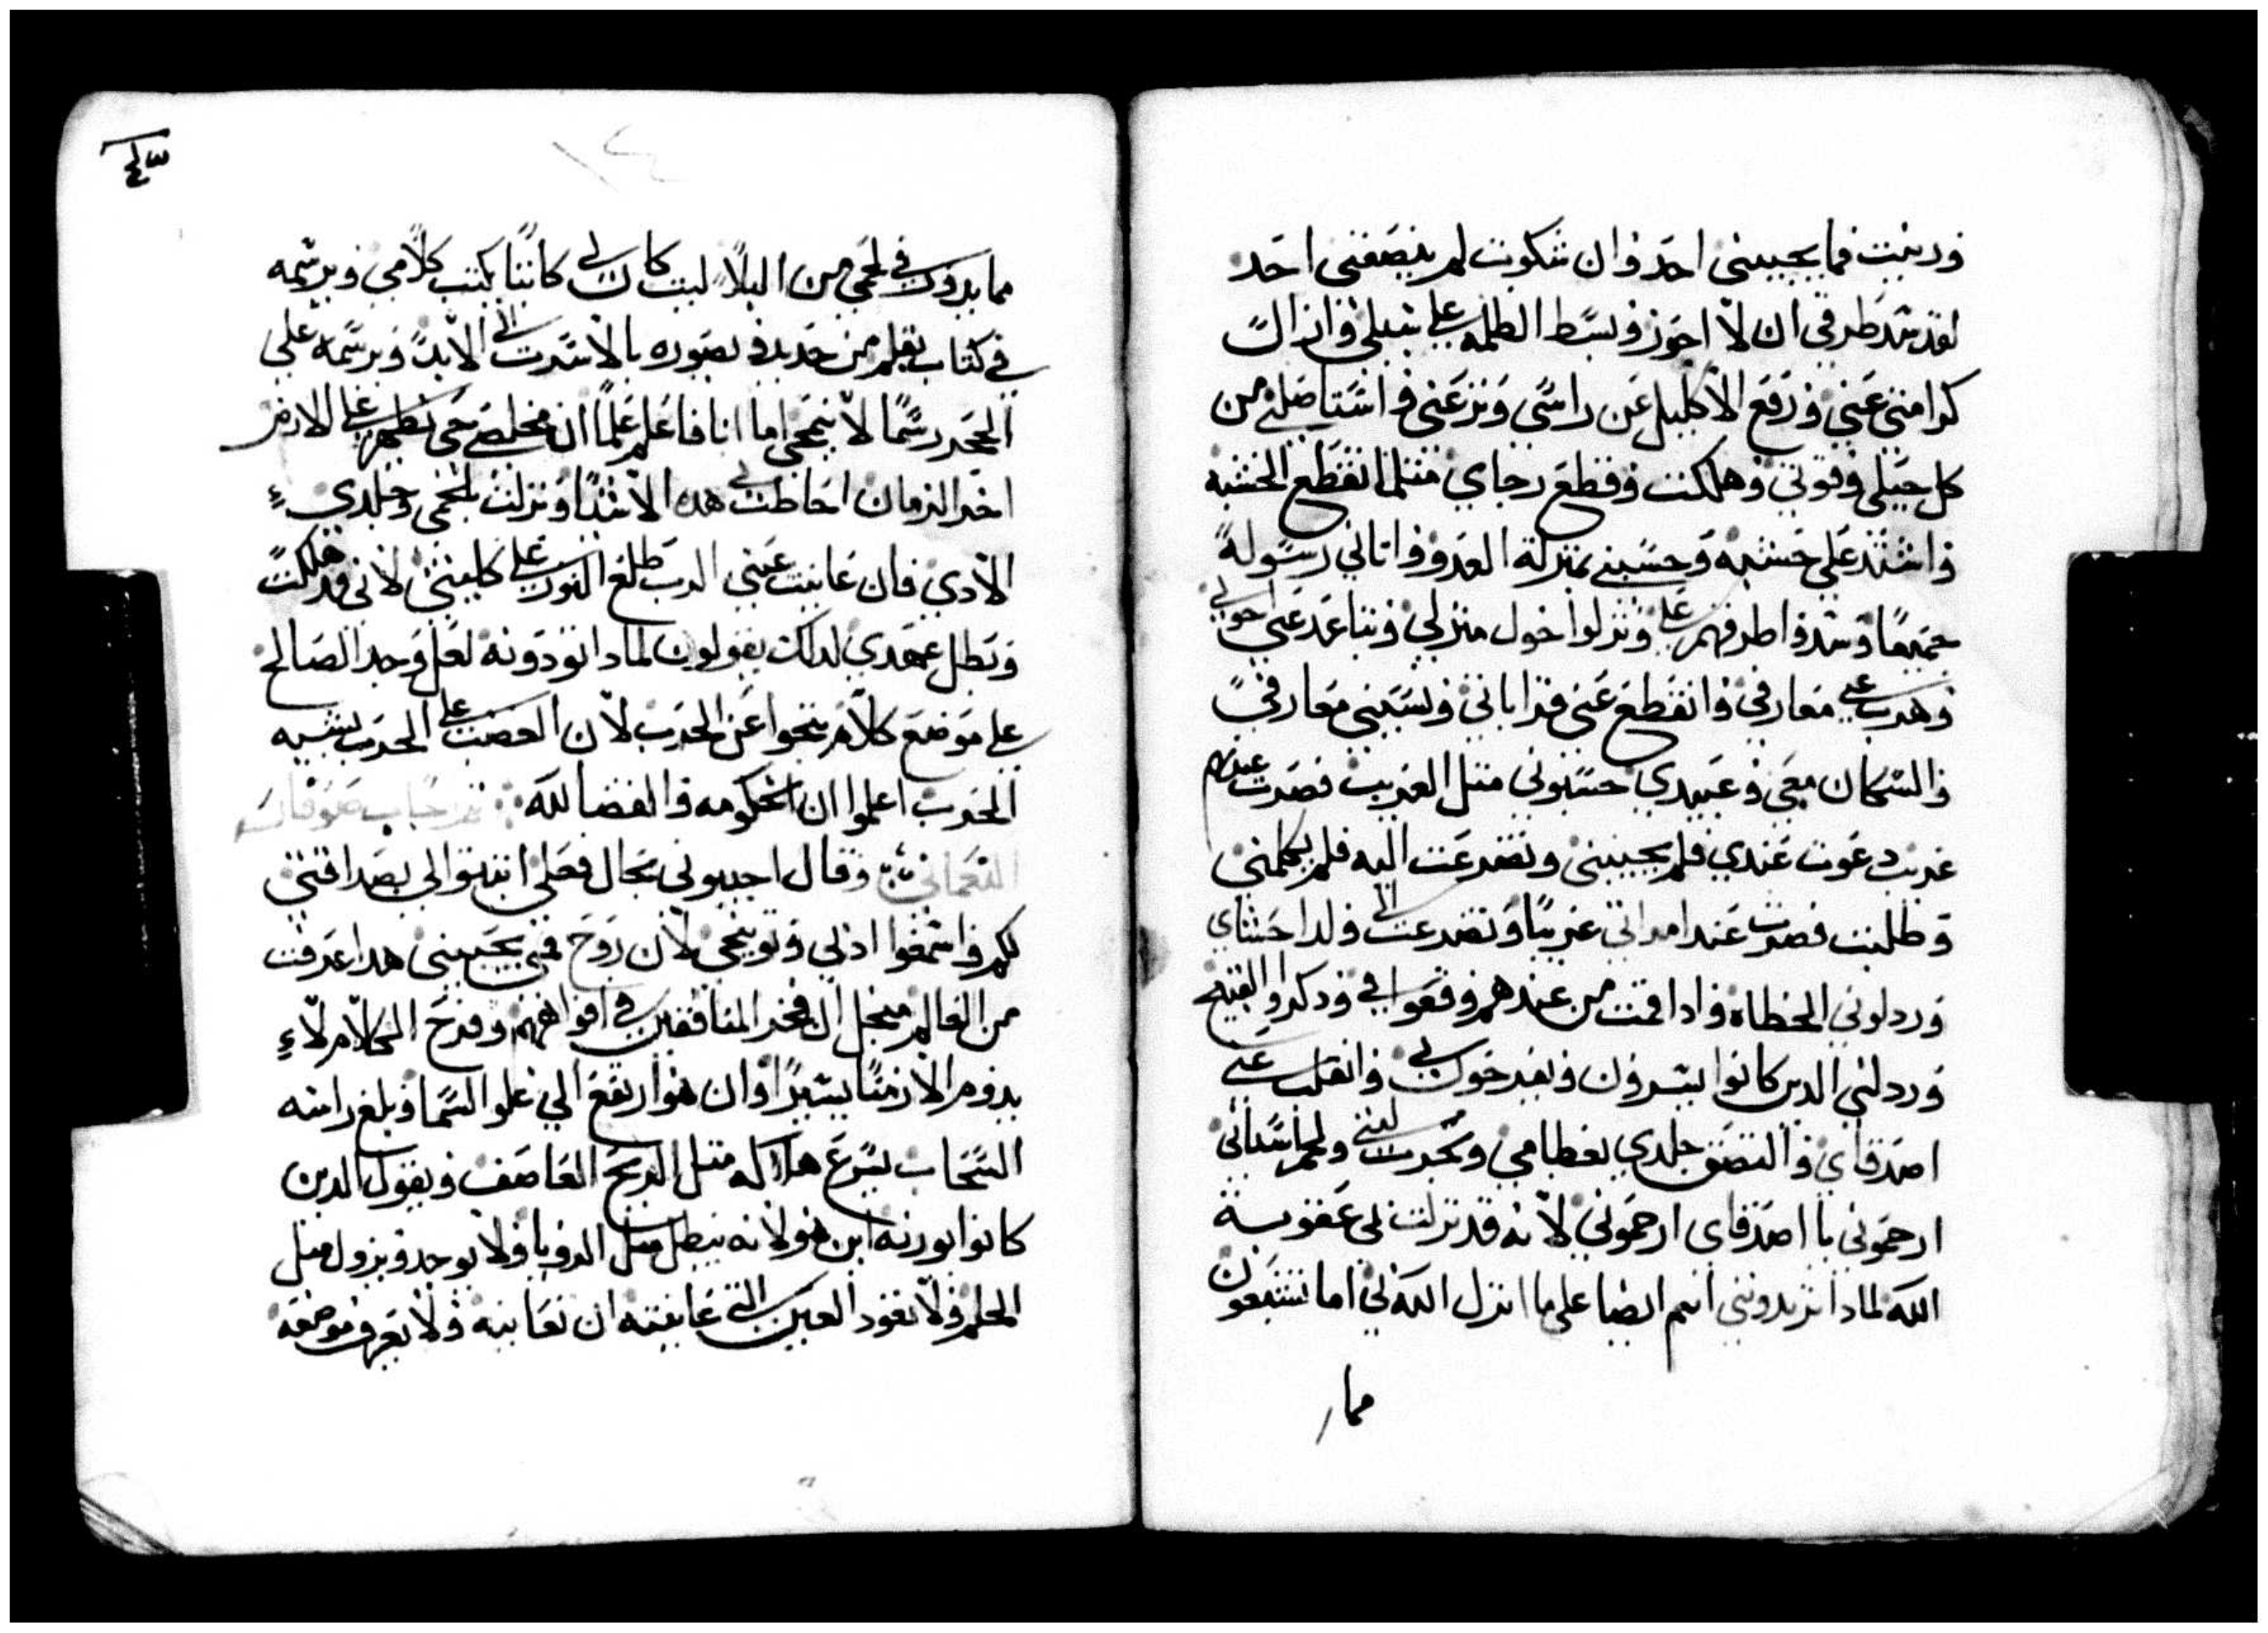 ورثيت فما يجيبني احد وان شكوت لم ينصفني احد
لقد شد طرقي ان لا اجوز وبسط الظلمه علي سبلي وازال
كرامتي عني ورفع الاكليل عن راسي ونزعني واستاصلني من
كل حيلي وقوتي وهلكت وقطع رجاي مثلما تقطع الخشبه
واشتد علي خشيه وحسبني بمنزلة العدو واتاني رسوله
جميعا وشدوا طرقهم علي ونزلوا حول منزلي وتباعد عني اخوتي
وهرب عني معارفي وانقطع عني قراباتي ونسيني معارفي
والسكان معي وعبيدي حسبوني مثل الغريب فصرت عندهم
غريب دعوت عبدي فلم يجيبني وتضرعت اليه فلم يكلمني
وطلبت فصرت عند امراتي غريبا وتضرعت الي ولد احشاي
وردلوني الخطاه واذا قمت من عندهم وقعوا في وذكروا القبيح
وردلني الدين كانوا يسرون ويفرحون بي وانقلب عني
اصدقاي والتصق جلدي بعظامي وتجردت لثتي ولحم اسناني
ارحموني يا اصدقاي ارحموني لانه قد نزلت بي عقوبة
الله لمادا تزيدونني انتم ايضا علي ما انزل الله بي اما تشبعون
مما
مما بدوب في لحمي من البلا ليت كان لي كاتبا يكتب كلامي ويرسمه
في كتاب بقلم من حديد ويصوره بالاسرب الي الابد ويرسمه علي
الحجر رسما لا ينمحي اما انا فاعلم علما ان مخلصي حي يظهر علي الارض
اخر الزمان احاطت بي هده الاشيا ونزلت بلحمي وجلدي
الادي فان عاينت عيني الرب طلع النور علي كليتي لاني قد هلكت
وبطل عهدي لدلك يقولون لمادا نودونه لعل وجد الصالح
علي موضع كلام ينجوا عن الحرب لان الغضب علي الحرب يشبه
الحرب اعلموا ان الحكومه والقضا لله تم رد جاب صوفار
النعماني وقال اجيبوني بحال فعلي انبتوا لي بصداقتي
لكم واسمعوا ادبي وتوبيخي لان روح فمي يجيبني هدا عرفت
من العالم منجل ال فخر المنافقين في افواههم وفرح الكلام لا
يدوم الا زمنا يسيرا وان هو ارتفع الي علو السما وبلغ راسه
السحاب يسرع هلاكه مثل الريح العاصف ويقول الدين
كانوا يورنه اين هو لانه يبطل مثل الرويا ولا يوجد ويزول مثل
الحلم ولا تعود العين التي عاينته ان تعاينه ولا تعرف موضعه